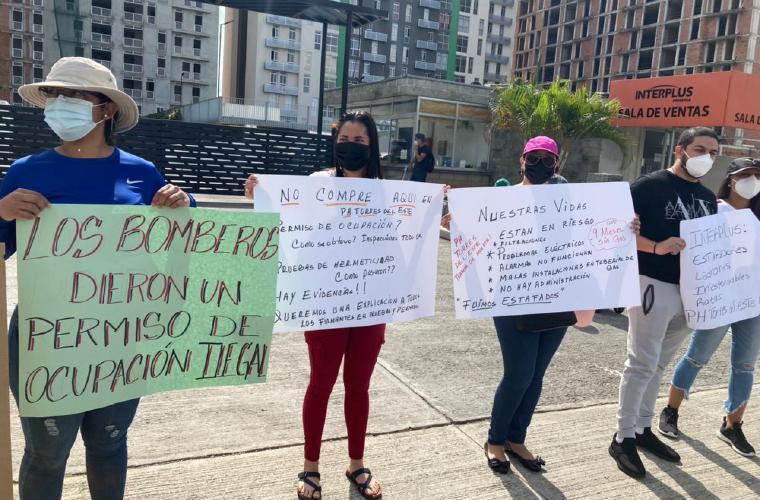 INTERPLUS
SALA DE VENTAS
SALA D
LOS BOMBEROS
DIERON UN
PERMISO DE
OCUPACIÓN ILEGAL
NO COMPRE AQUI EN
PH TORRES DEL ESTE
PERMISO DE OCUPACIÓN?
COMO SE OBTUVO?
PRUEBAS DE HERMETICIDAD
COMO PASARON??
HAY EVIDENCIAS!!
QUEREMOS UNA EXPLICACIÓN A TODOS
LOS FIRMANTES EN
NUESTRAS VIDAS
ESTAN EN RIESGO
* FILTRACIONES
* PROBLEMAS ELÉCTRICOS
* ALARMAS NO FUNCIONAN
* MALAS INSTALACIONES EN TUBERIA DE
GAS
* NO HAY ADMINISTRACIÓN
"FUIMOS ESTAFADOS"
9 MESES
SIN GAS
INTERPLUS:
ESTAFADORES
LADRONES
IRRESPONSABLES
RATAS
PH TORRES DEL ESTE